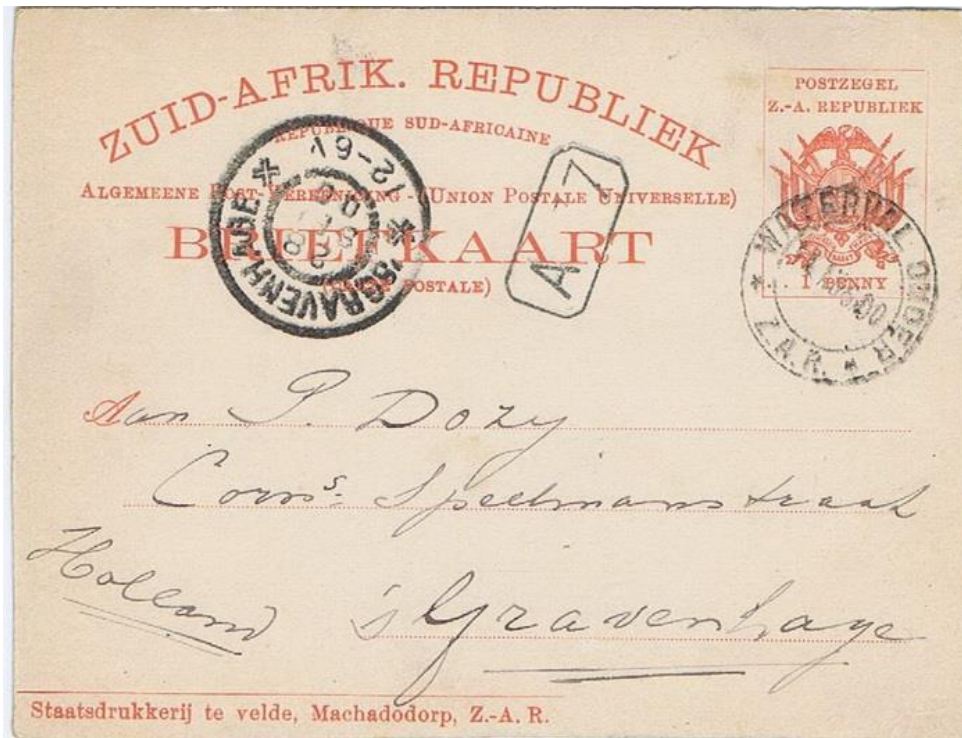 ZUID-AFRIK. REPUBLIEK
REPUBLIQUE SUD-AFRICAINE
ALGEMEENE POST-VEREENIGING - (UNION POSTALE UNIVERSELLE)
BRIEFKAART
(CARTE POSTALE)
POSTZEGEL
Z.-A. REPUBLIEK
1 PENNY
WATERVAL ONDER
Z.A.R.
'SGRAVENHAGE
12-6V
A 7
Aan P. Dozy
Corns. Speelmanstraat
Holland
's Gravenhage
Staatsdrukkerij te velde, Machadodorp, Z.-A. R.